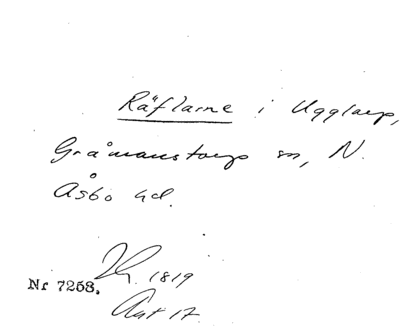 Räflarne i Ugglarp,
Gråmanstorps sn, N.
Åsbo hd.
1819
Nr 7258.
Ant 17